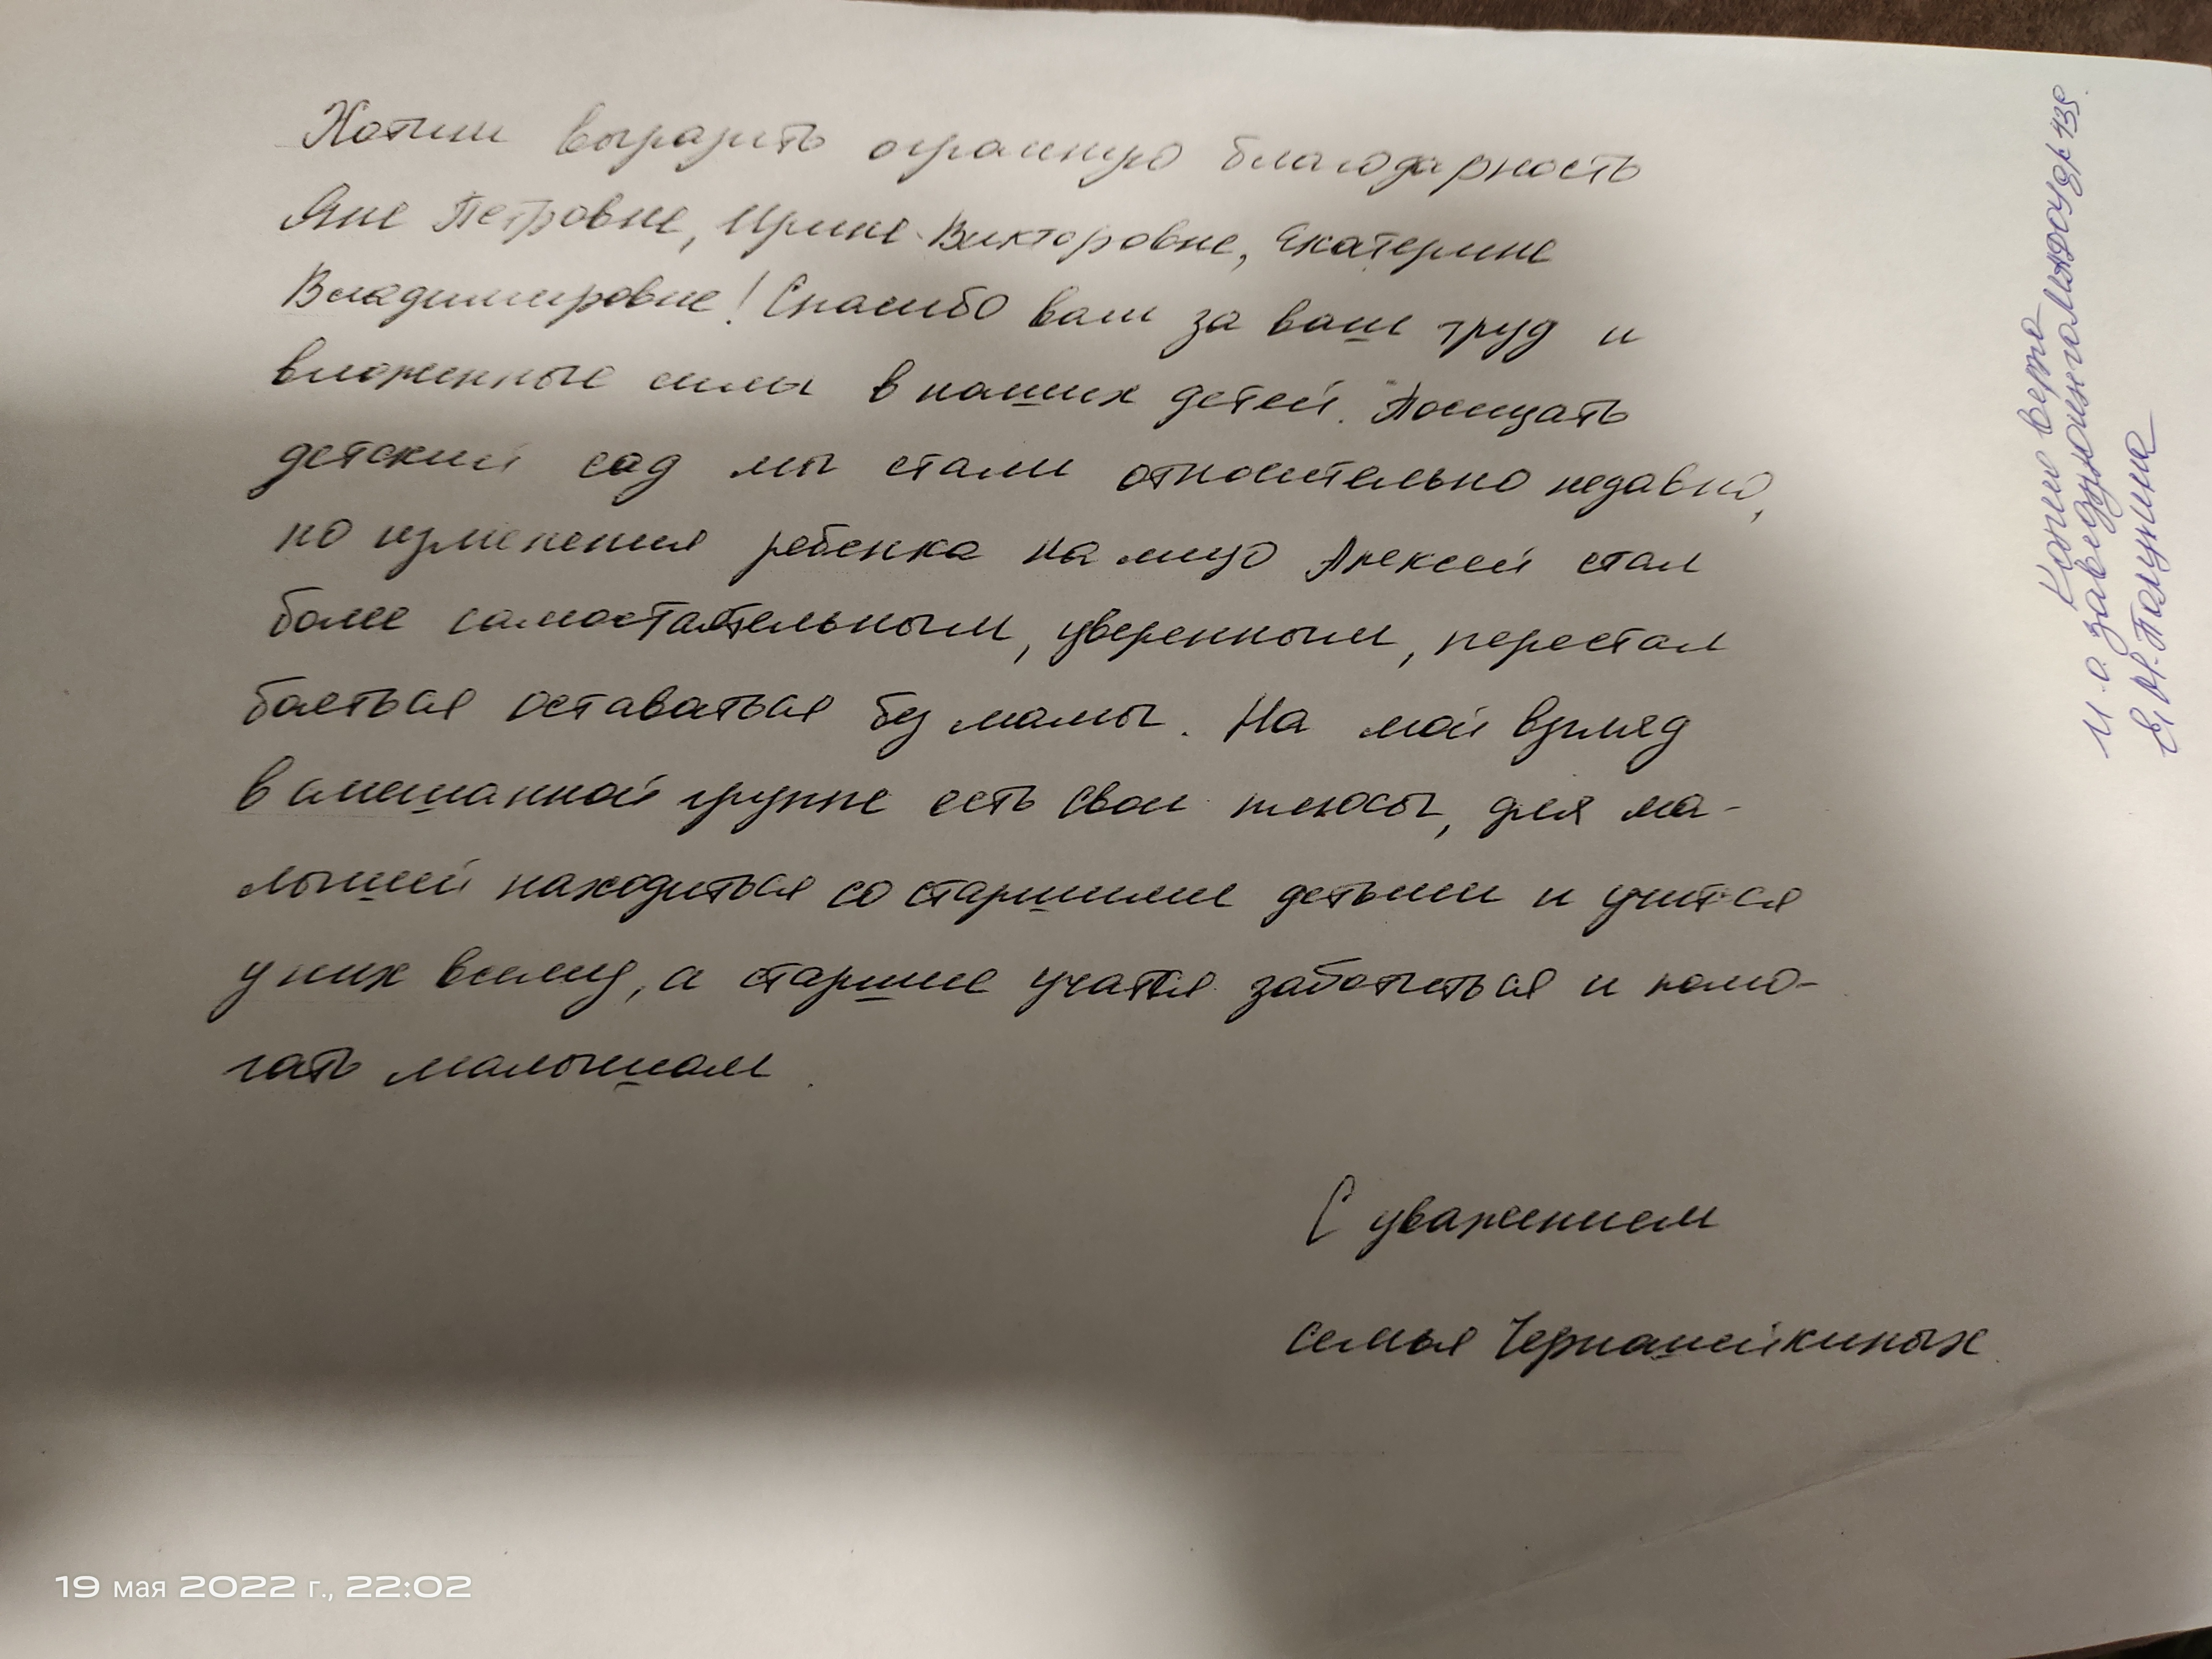 Хотим выразить огромную благодарность
Яне Петровне, Ирине Викторовне, Екатерине
Владимировне! Спасибо вам за ваш труд и
вложенные силы в наших детей. Посещать
детский сад мы стали относительно недавно,
но изменения ребенка на лицо Алексей стал
более самостоятельным, уверенным, перестал
бояться оставаться без мамы. На мой взгляд
в смешанной группе есть свои плюсы, для ма-
лышей находиться со старшими детьми и учится
у них всему, а старшие учатся заботиться и помо-
гать малышам.
С уважением
семья Чернашейкиных
Копия верна
И.о. заведующего МАДОУ д/с 135
Е.Н. Палунина
19 мая 2022 г., 22:02